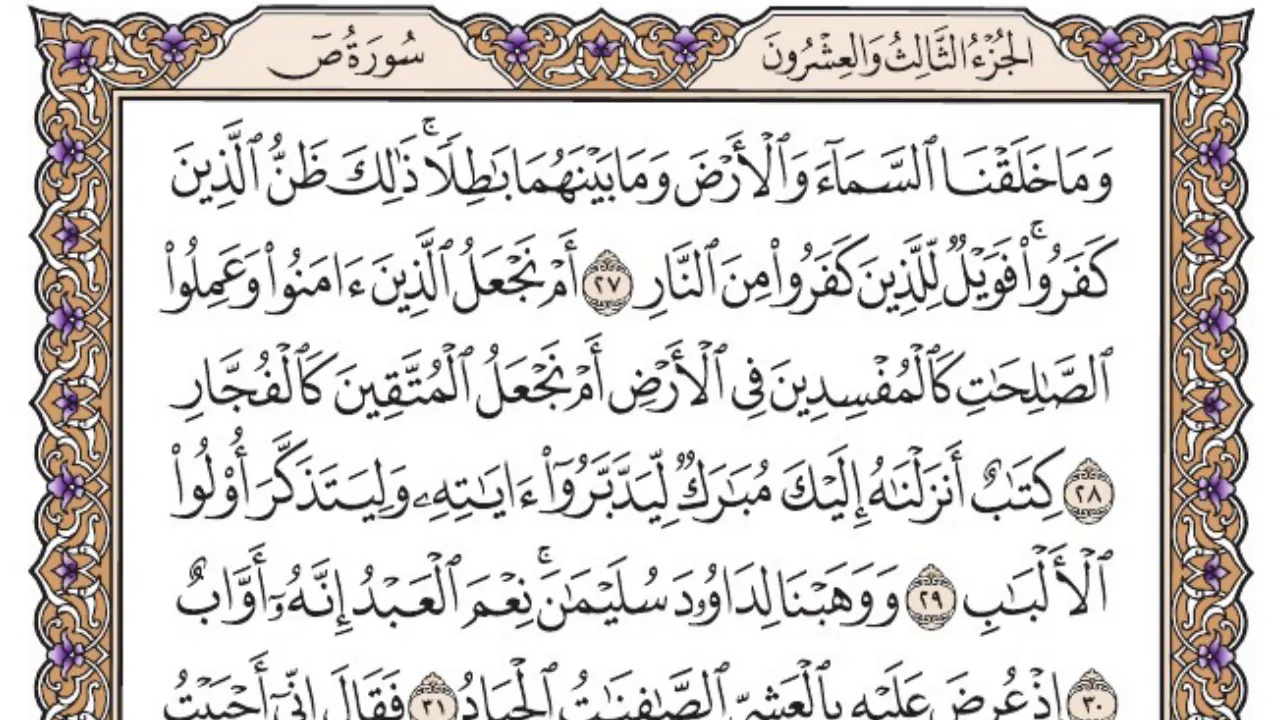 الجُزْءُ الثَّالِثُ وَالعِشْرُونَ
سُورَةُ صٓ
وَمَا خَلَقْنَا ٱلسَّمَآءَ وَٱلْأَرْضَ وَمَا بَيْنَهُمَا بَٰطِلًاۚ ذَٰلِكَ ظَنُّ ٱلَّذِينَ
كَفَرُوا۟ۚ فَوَيْلٌ لِّلَّذِينَ كَفَرُوا۟ مِنَ ٱلنَّارِ ٢٧ أَمْ نَجْعَلُ ٱلَّذِينَ ءَامَنُوا۟ وَعَمِلُوا۟
ٱلصَّٰلِحَٰتِ كَٱلْمُفْسِدِينَ فِى ٱلْأَرْضِ أَمْ نَجْعَلُ ٱلْمُتَّقِينَ كَٱلْفُجَّارِ
٢٨ كِتَٰبٌ أَنزَلْنَٰهُ إِلَيْكَ مُبَٰرَكٌ لِّيَدَّبَّرُوٓا۟ ءَايَٰتِهِۦ وَلِيَتَذَكَّرَ أُو۟لُوا۟
ٱلْأَلْبَٰبِ ٢٩ وَوَهَبْنَا لِدَاوُۥدَ سُلَيْمَٰنَۚ نِعْمَ ٱلْعَبْدُ إِنَّهُۥٓ أَوَّابٌ
٣٠ إِذْ عُرِضَ عَلَيْهِ بِٱلْعَشِىِّ ٱلصَّٰفِنَٰتُ ٱلْجِيَادُ ٣١ فَقَالَ إِنِّىٓ أَحْبَبْتُ